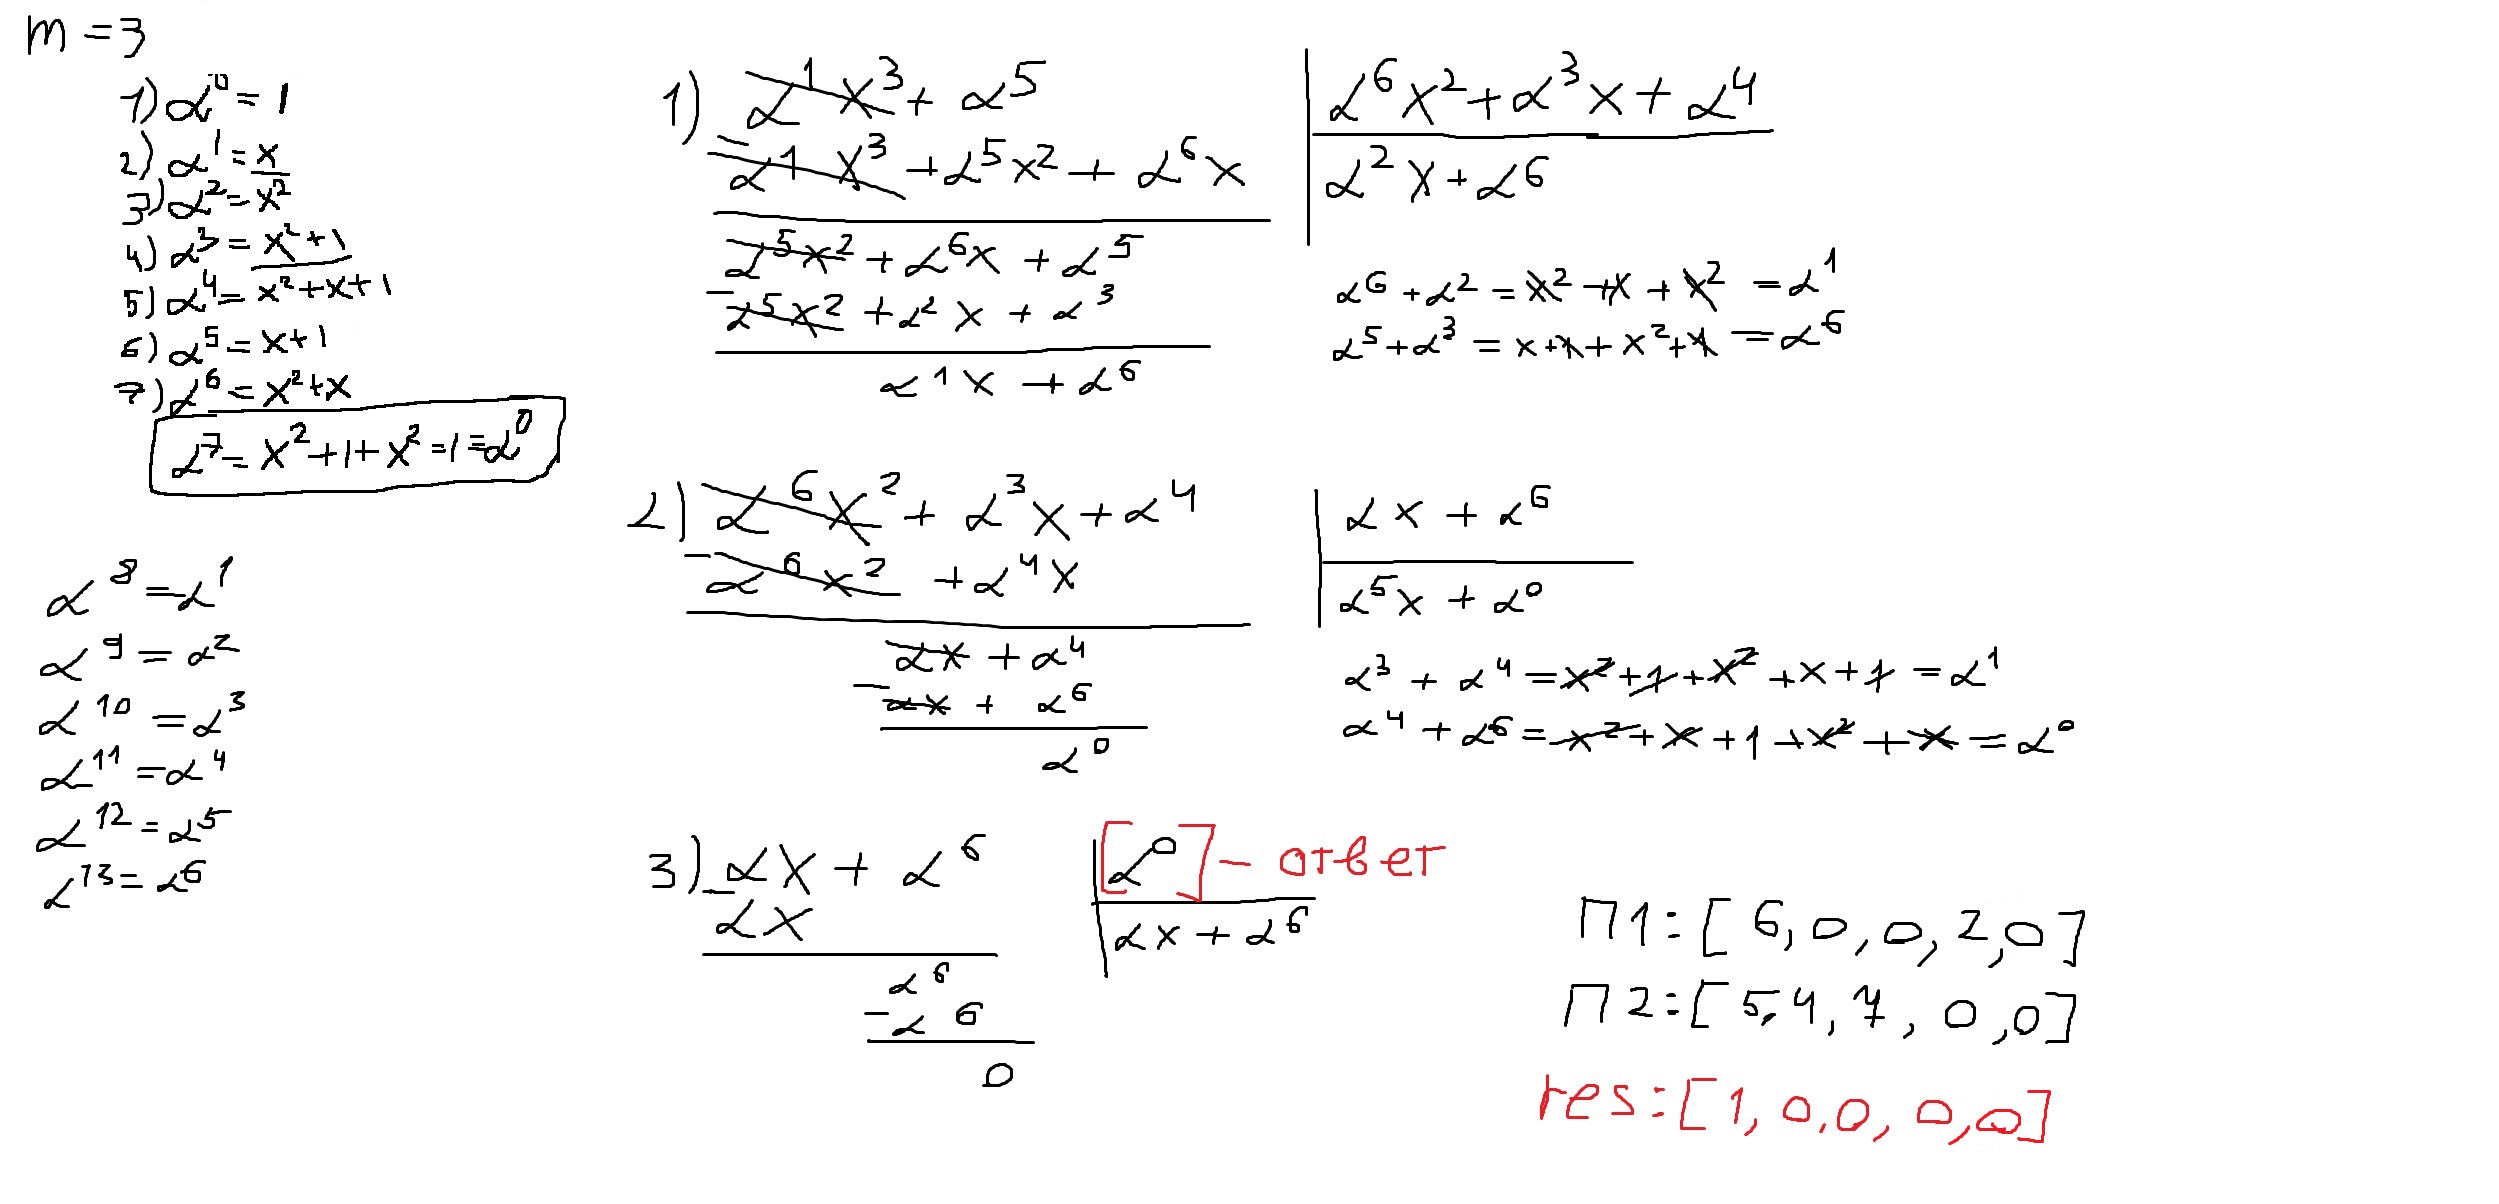 m = 3
1) α⁰ = 1
2) α¹ = x
3) α² = x²
4) α³ = x² + 1
5) α⁴ = x² + x + 1
6) α⁵ = x + 1
7) α⁶ = x² + x
α⁷ = x² + 1 + x² = 1 = α⁰
α⁸ = α¹
α⁹ = α²
α¹⁰ = α³
α¹¹ = α⁴
α¹² = α⁵
α¹³ = α⁶
1) α¹x³ + α⁵ | α⁶x² + α³x + α⁴
− α¹x³ + α⁵x² + α⁶x | α²x + α⁶
α⁵x² + α⁶x + α⁵
− α⁵x² + α²x + α³
α¹x + α⁶
α⁶ + α² = x² + x + x² = α¹
α⁵ + α³ = x + 1 + x² + 1 = α⁶
2) α⁶x² + α³x + α⁴ | αx + α⁶
− α⁶x² + α⁴x | α⁵x + α⁰
αx + α⁴
− αx + α⁶
α⁰
α³ + α⁴ = x² + 1 + x² + x + 1 = α¹
α⁴ + α⁶ = x² + x + 1 + x² + x = α⁰
3) αx + α⁶ | [α⁰] – ответ
− αx | αx + α⁶
α⁶
− α⁶
0
П1: [6, 0, 0, 2, 0]
П2: [5, 4, 7, 0, 0]
res: [1, 0, 0, 0, 0]